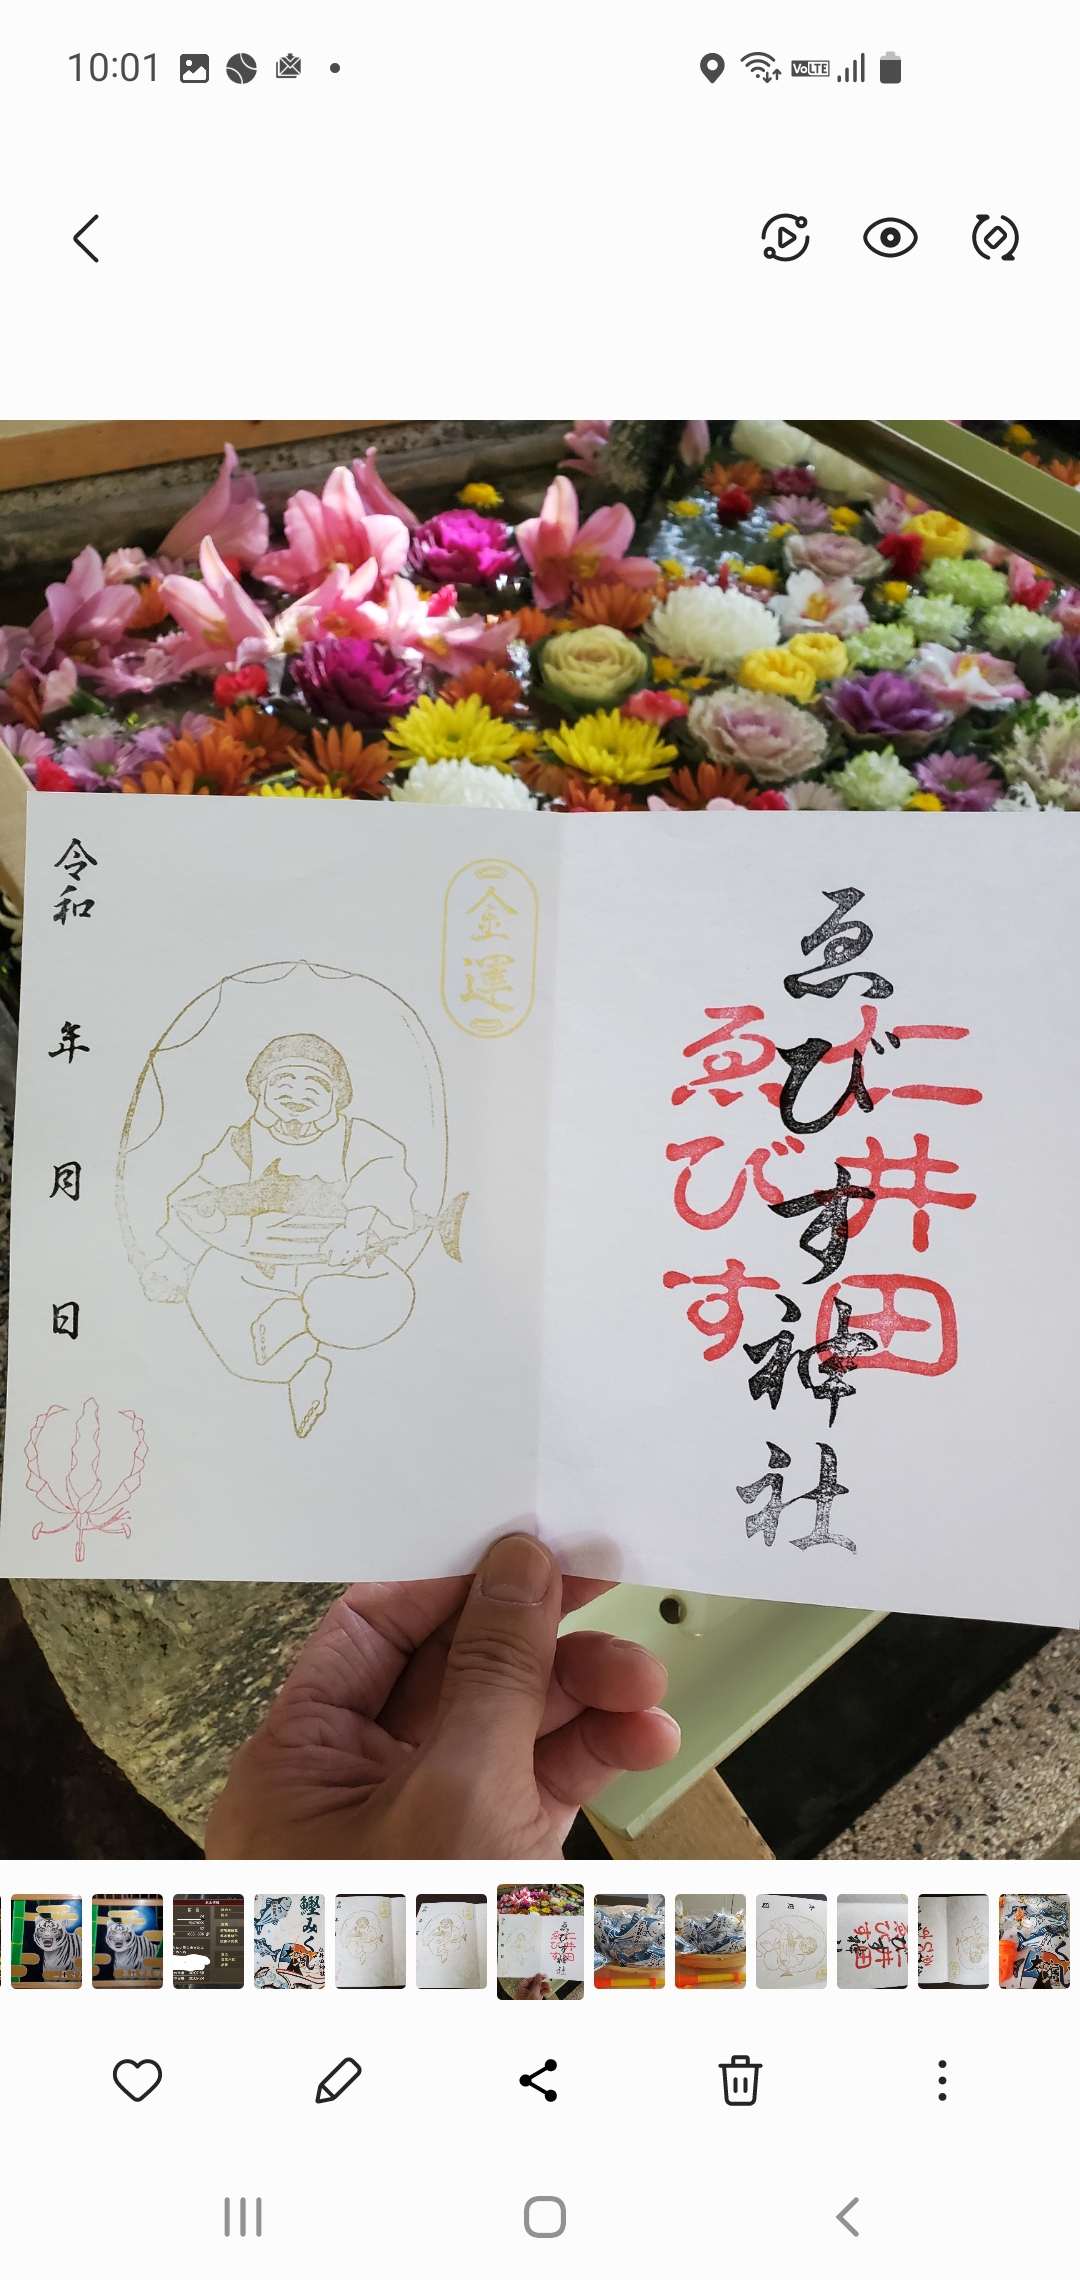 10:01
VoLTE
ゑびす神社
仁井田
ゑびす
金運
令和 年 月 日
鰹みくじ